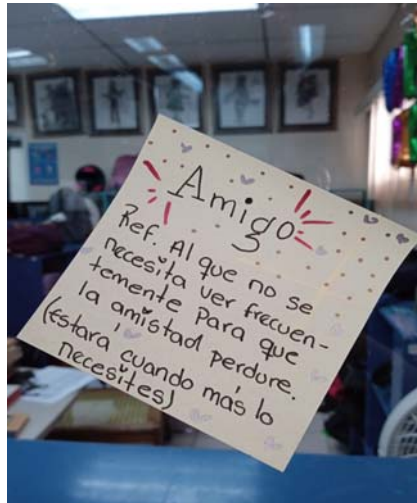 Amigo
Ref. Al que no se
necesita ver frecuen-
temente Para que
la amistad perdure.
(Estará cuando más lo
necesites)